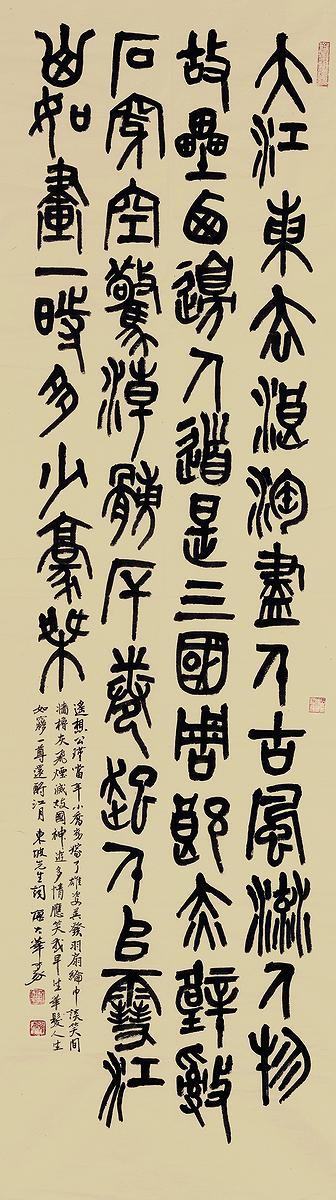 大江東去浪淘盡千古風流人物
故壘西邊人道是三國周郎赤壁亂
石穿空驚濤岸捲起千堆雪江
山如畫一時多少豪傑
遙想公瑾當年小喬初嫁了雄姿英發羽扇綸巾談笑間
檣櫓灰飛煙滅故國神遊多情應笑我早生華髮人生
如夢一尊還酹江月 東坡先生詞 大華